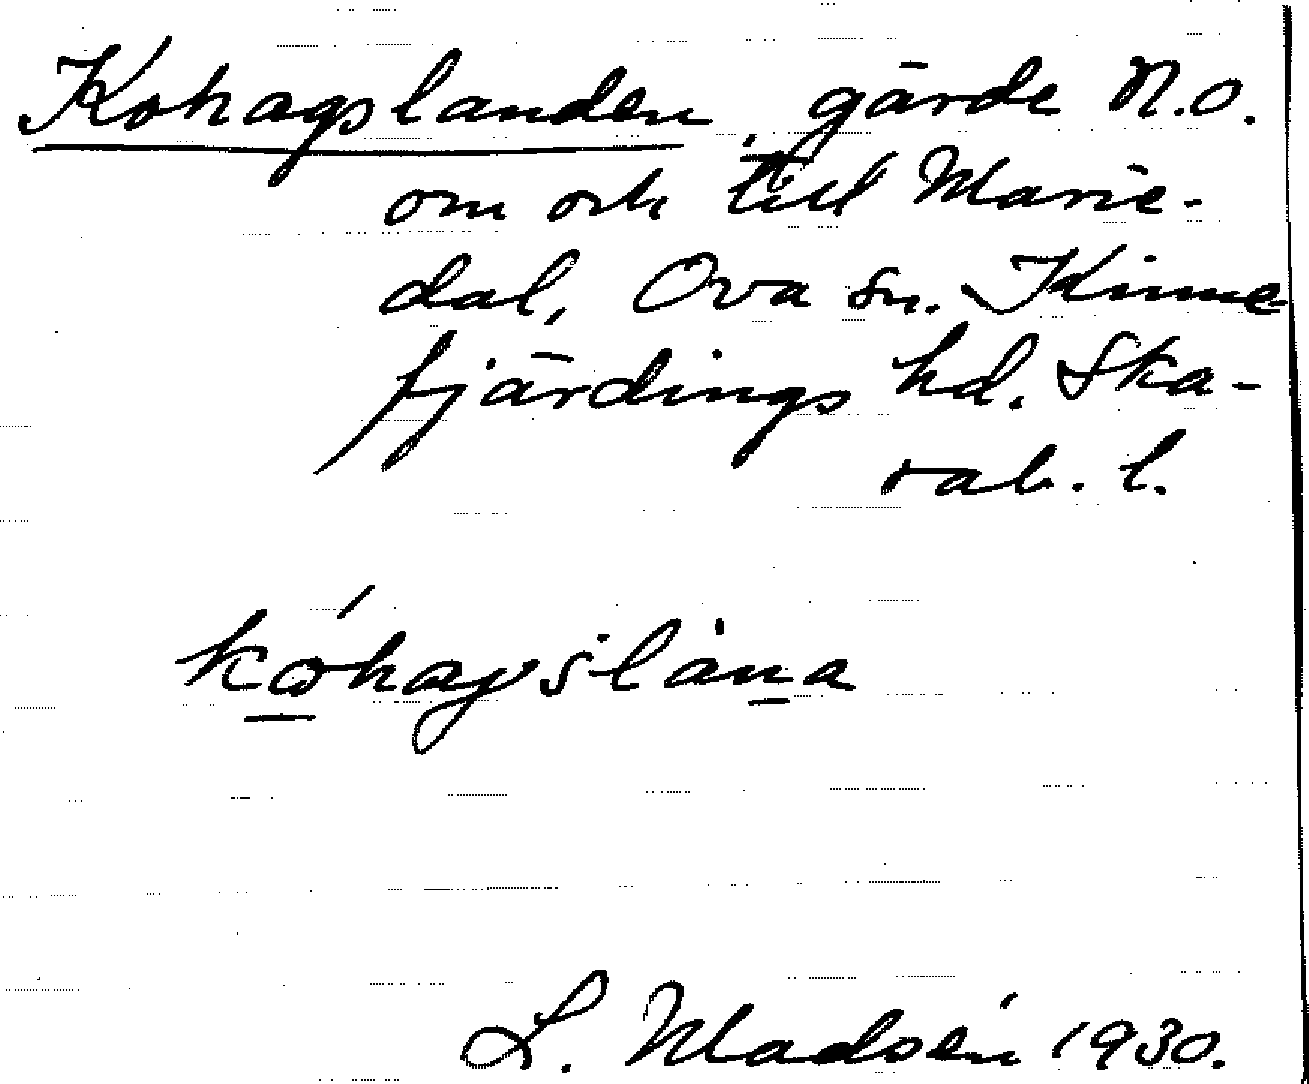 Kohagslanden, gärde N.O.
om och till Marie-
dal, Ova sn. Kinne
fjärdings hd. Ska-
rab. l.
kóhagslana
L. Madsén 1930.